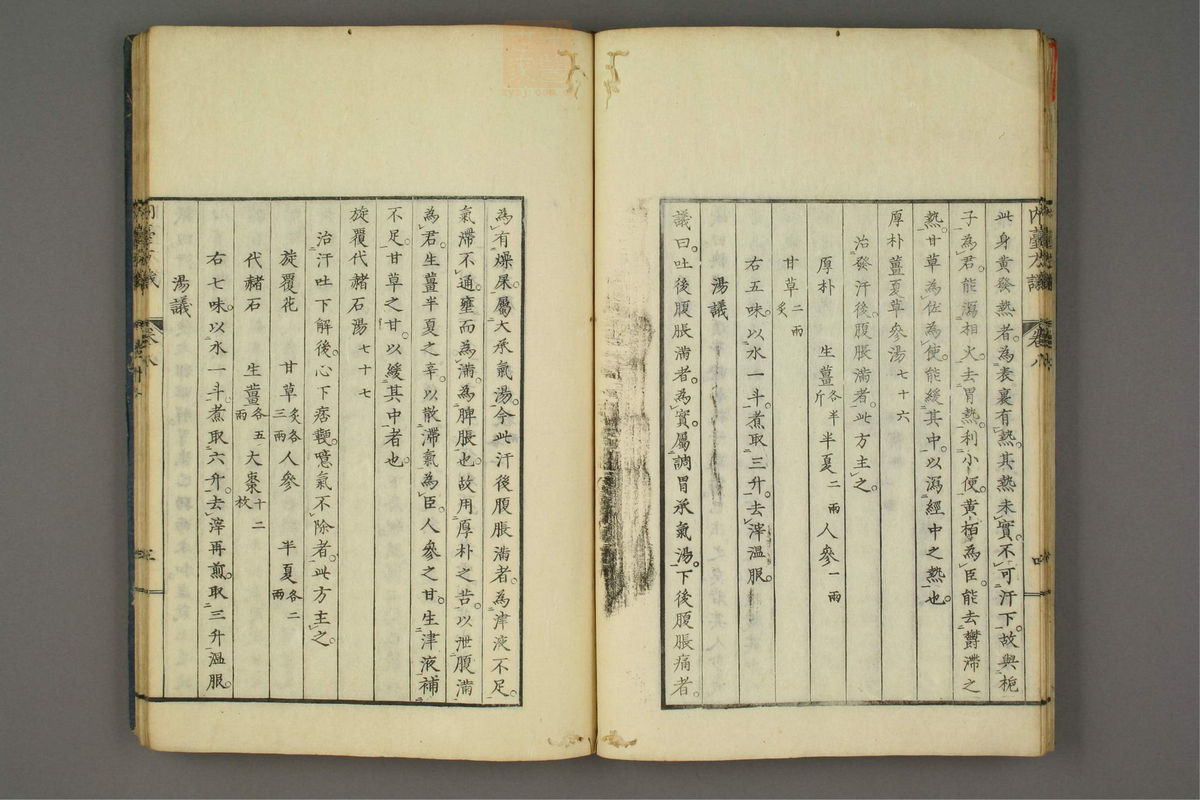 此身黃發熱者為表裏有熱其熱未實不可汗下故與梔
子為君能瀉相火去胃熱利小便黃栢為臣能去鬱滯之
熱甘草為佐為使能緩其中以瀉經中之熱也
厚朴薑夏草參湯七十六
治發汗後腹脹滿者此方主之
厚朴 生薑各半斤 半夏二兩 人參一兩
甘草二兩炙
右五味以水一斗煮取三升去滓溫服
湯議
議曰吐後腹脹滿者為實屬調胃承氣湯下後腹脹痛者
為有燥屎屬大承氣湯今此汗後腹脹滿者為津液不足
氣滯不通壅而為滿為脾脹也故用厚朴之苦以泄腹滿
為君生薑半夏之辛以散滯氣為臣人參之甘生津液補
不足甘草之甘以緩其中者也
旋覆代赭石湯七十七
治汗吐下解後心下痞鞕噫氣不除者此方主之
旋覆花 甘草炙各三兩 人參 半夏各二兩
代赭石 生薑各五兩 大棗十二枚
右七味以水一斗煮取六升去滓再煎取三升溫服
湯議
卷八